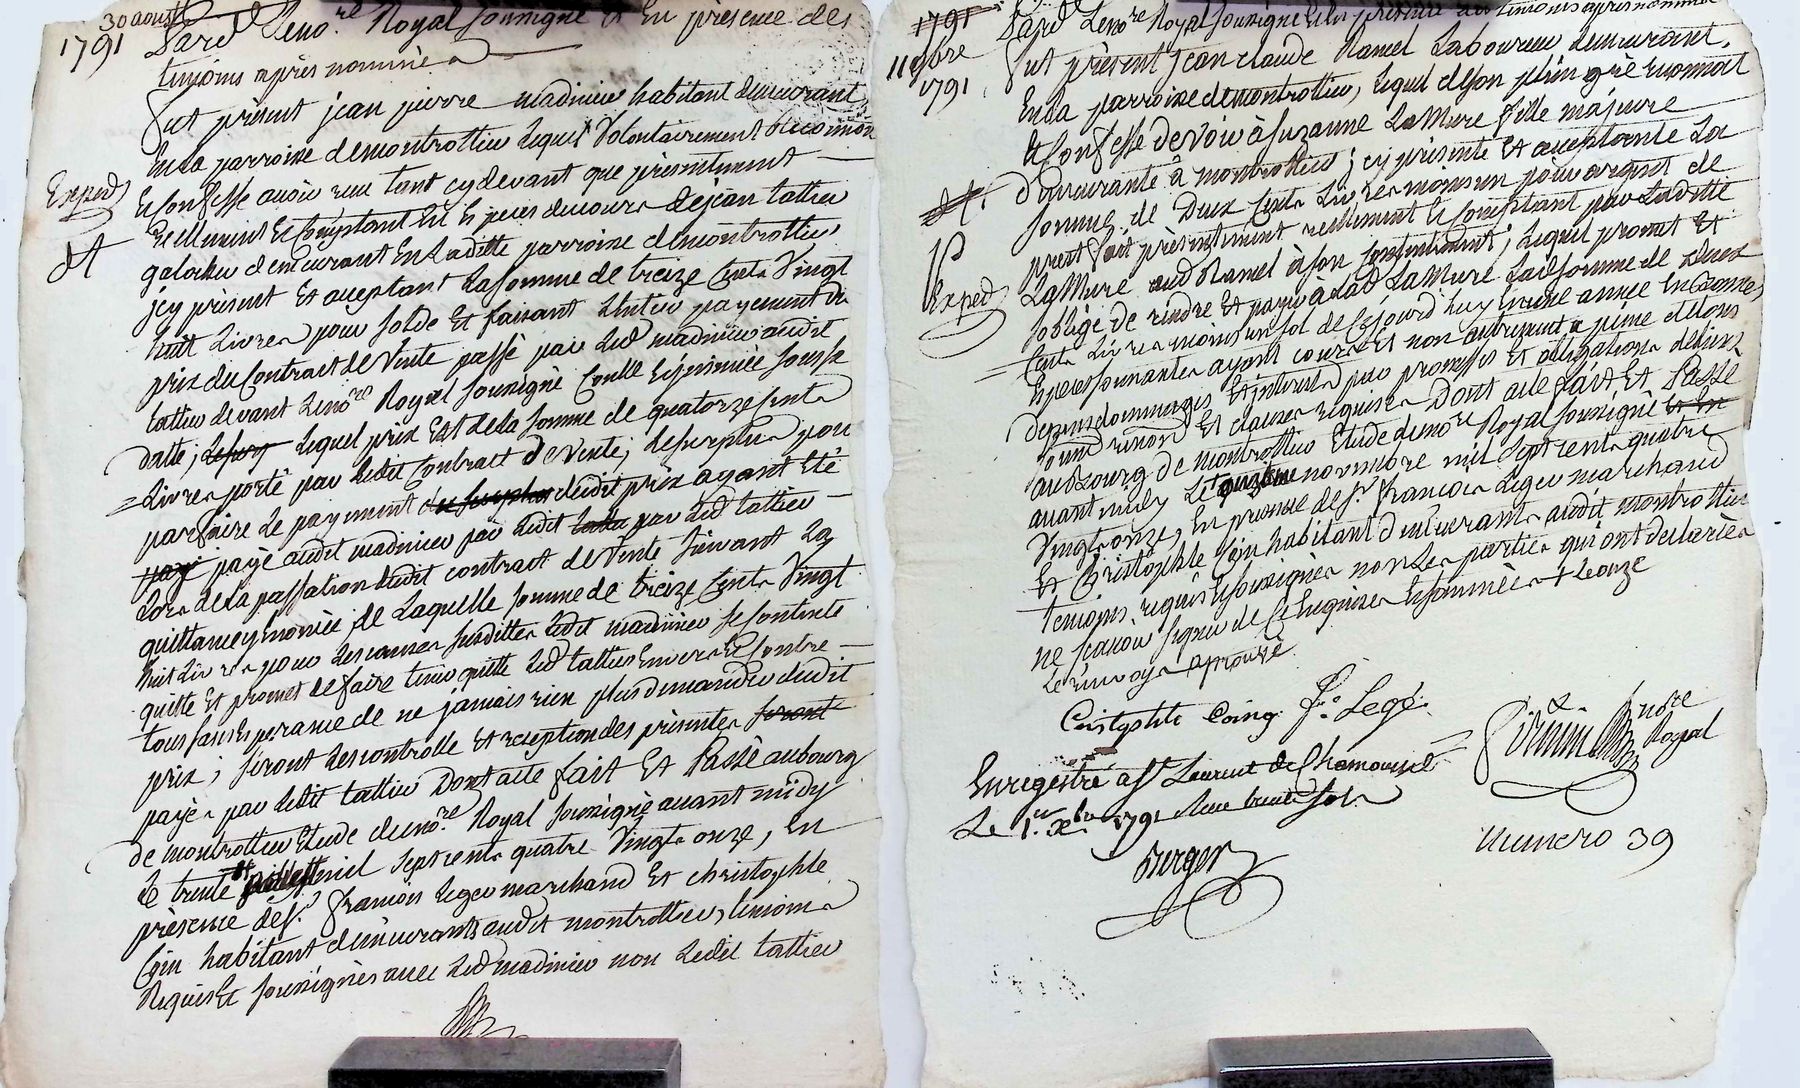 30 aoust
1791
Pard.t Leno.re Royal soussigné Et En présence des
temoins après nommés
fut présent jean pierre madinier habitant demeurant
En la parroisse demontrottier lequel Volontairement Reconnoit
Exped
Et Confesse avoir reçu tant cydevant que présentement
réellement Et Comptant En Espèces de cours de jean tattier
galochier demeurant En Laditte parroisse demontrottier
jcy présent Et aceptant La somme de treize Cents Vingt
huit Livres pour solde Et faisant L'entier payement du
prix du Contract de Vente passé par Led madinier audit
tattier devant Leno.re Royal soussigné Controllé
datte ; lequel prix Est de La somme de quatorze Cents
Livres porté par Ledit Contract de Vente, Lesurplus pour
parfaire Le payement dudit prix ayant Eté
payé audit madinier par Ledit par Led tattier
Lors de La passation dudit contract de Vente suivant La
quittance y Enoncée ; de Laquelle somme de treize Cents Vingt
huit Livres pour Les causes susdittes Ledit madinier se contente
quitte Et promet de faire tenir quitte Led tattier Envers Et Contre
tous sans Esperance de ne jamais rien plus demander dudit
prix ; seront Les controlle Et reception des présentes seront
payés par Ledit tattier Dont acte fait Et Passé au bourg
de montrottier Etude duno.re Royal soussigné avant midy
Le trente mil sept cents quatre Vingts onze, En
présence de s.r françois Leger marchand Et christophle
Coin habitant demeurants audit montrottier, temoins
Requis Et soussignés avec Led madinier non Ledit tattier
1791
11 9bre
1791
Pard.t Leno.re Royal soussigné Et En présence des temoins après nommés
fut présent jean claude Ramel Laboureur demeurant
En La parroisse demontrottier, Lequel de son plein gré reconnoit
Et Confesse devoir à suzanne La Mure fille majeure
demeurante à montrottier ; jcy présente Et acceptante La
somme de Deux Cents Livres moins un pour argent de
prest fait présentement réellement Et Comptant par Laditte
La Mure aud Ramel à son Contentement ; Lequel promet Et
Exped
s'oblige de rendre Et payer à Lad La Mure Lad somme de deux
Cents Livres moins un sol de Cejourd'huy En une année En bonnes
Especes sonnantes ayant cours Et non autrement à peine de tous
depens dommages Et intérets par promesses Et obligations de biens
soumissions Et clauses requises Dont acte fait Et Passé
au Bourg de montrottier Etude duno.re Royal soussigné Et En
avant midy Le onzieme novembre mil sept cents quatre
Vingts onze, En presence de s.r francois Leger marchand
Et Christophle Coin habitant demeurants audit montrottier
temoins requis Et soussignés non Les parties qui ont déclarées
ne scavoir signer de Ce Enquises Et sommées + Le onze
Le renvoy approuvé
Cristophle Coing f. Legé
Pirnin nore Royal
Enregistré a St Laurent de Chamousset
Le 1.er Xbre 1791 Reçu trente sols
Berger
Numero 39